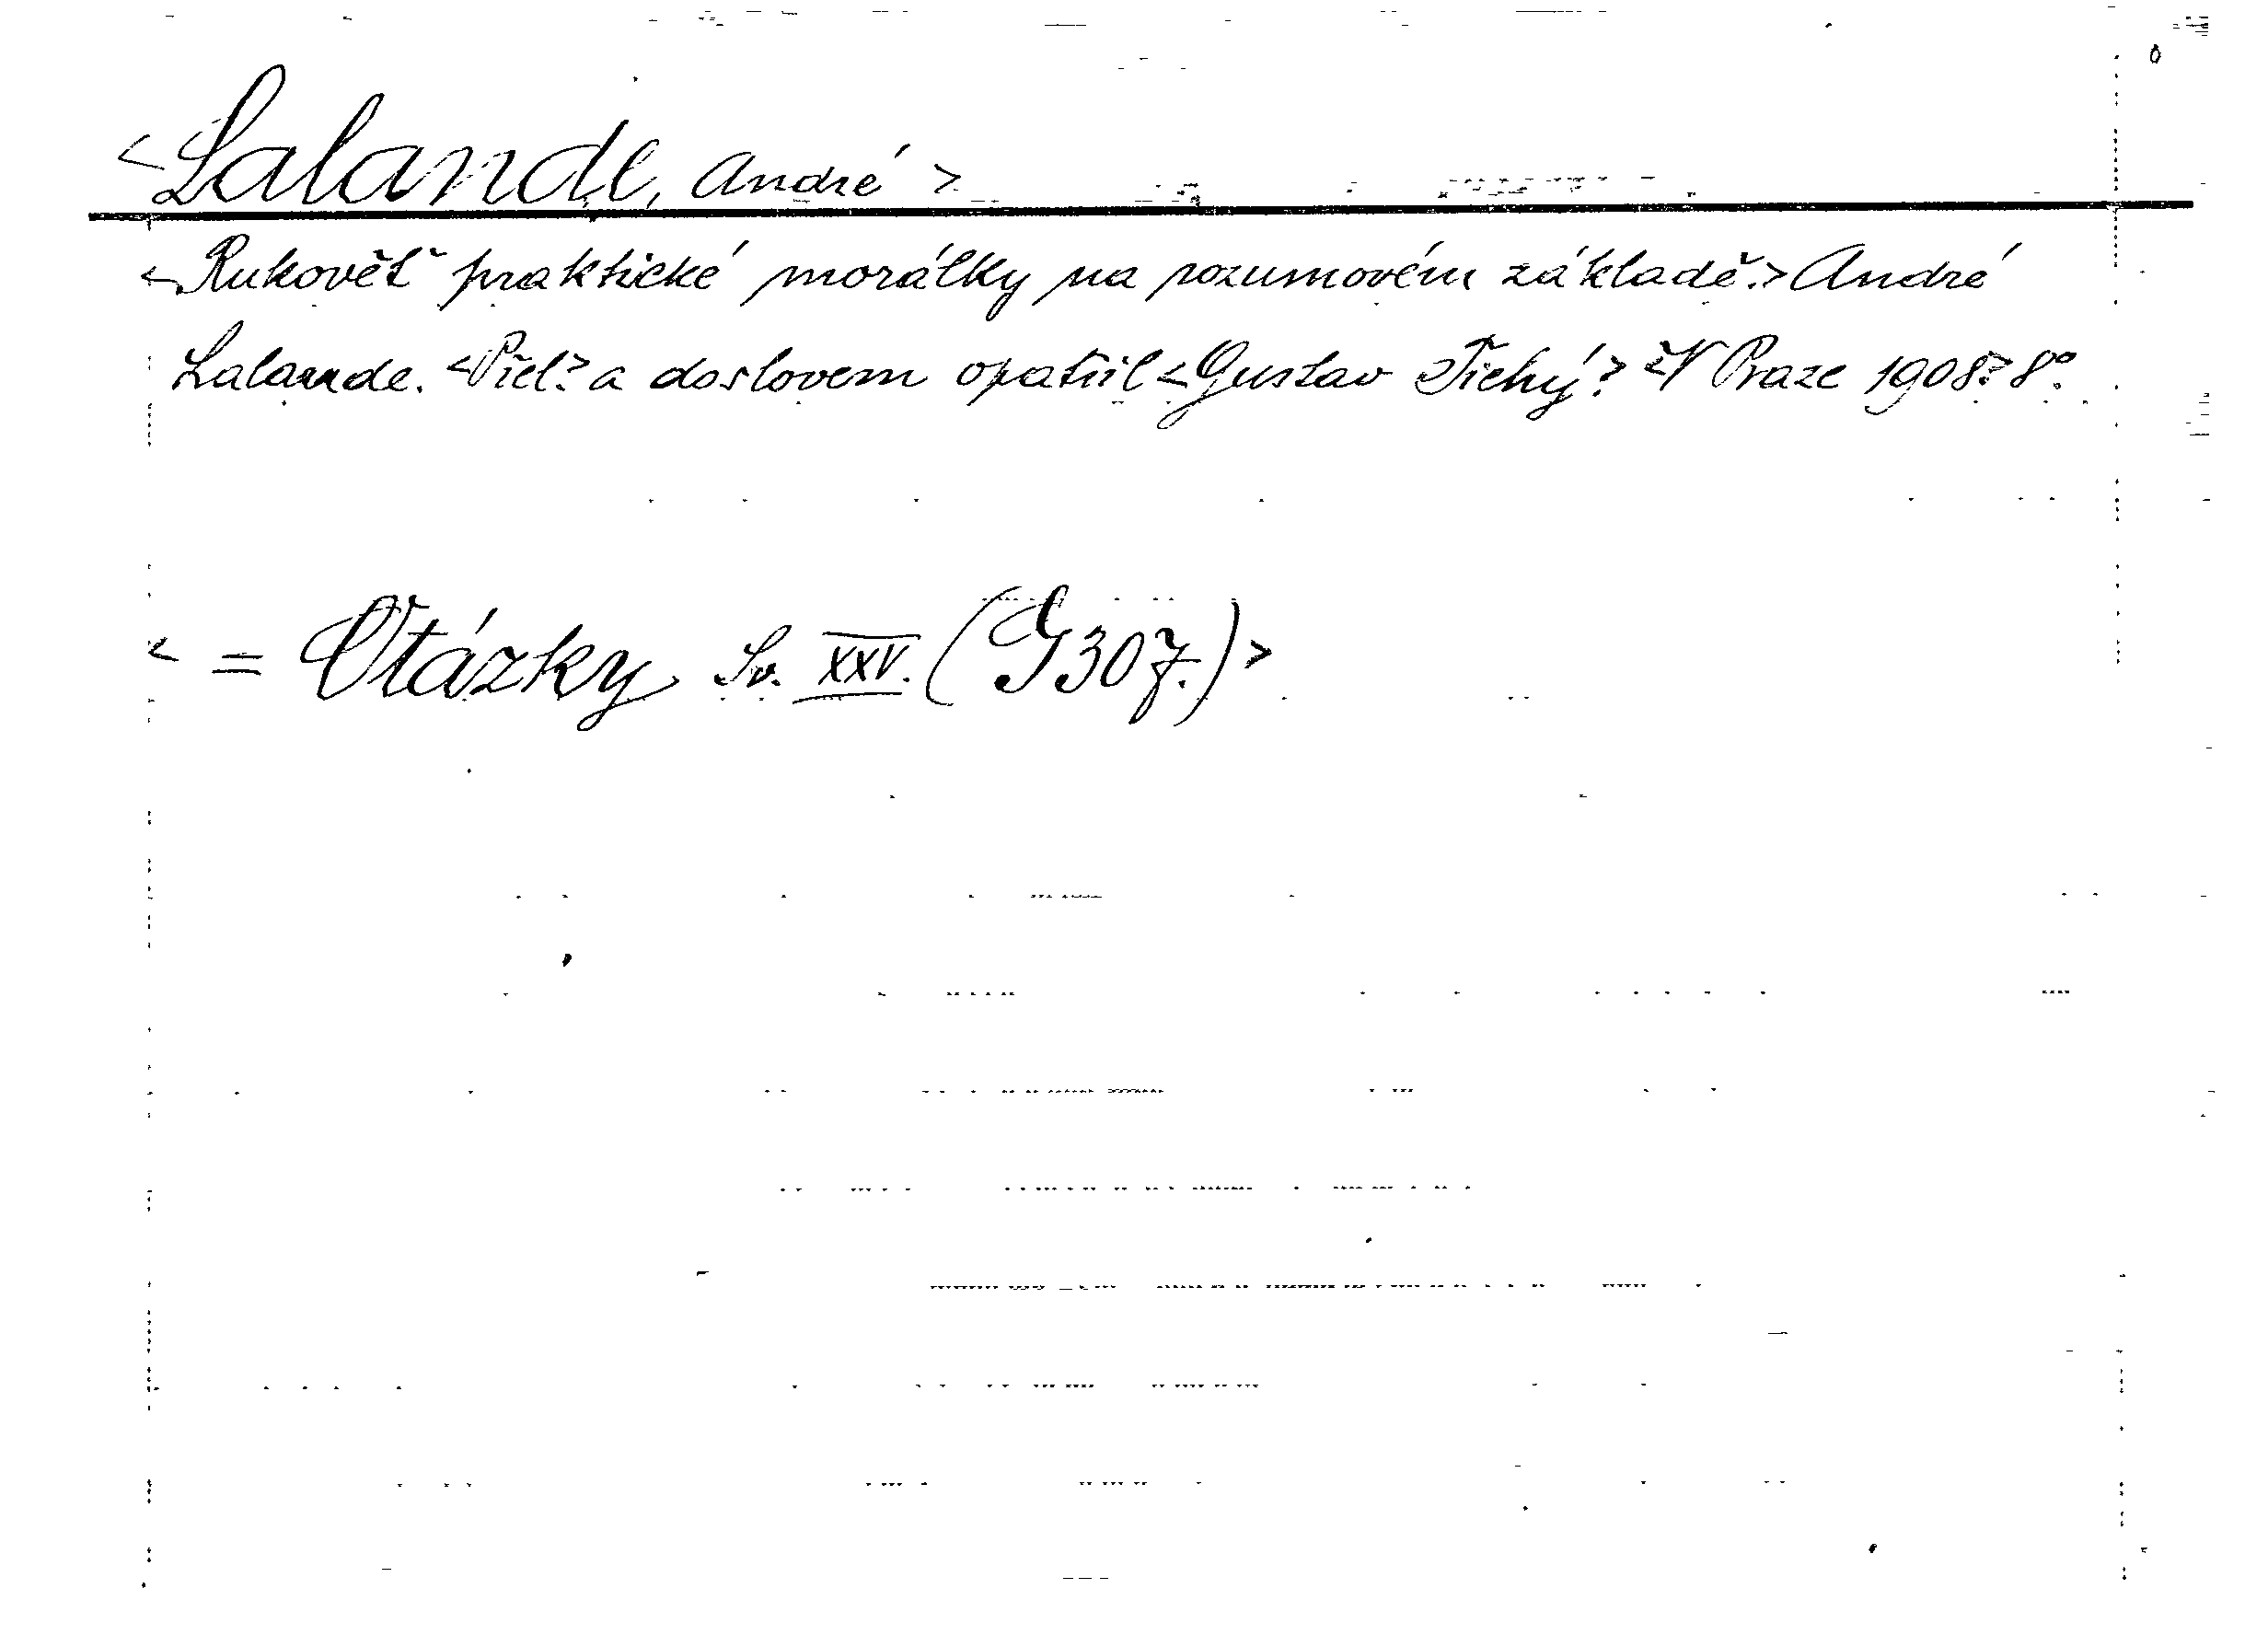 <Lalande, André>
<Rukověť praktické morálky na rozumovém základě.> André
Lalande. <Přel.> a doslovem opatřil <Gustav Tichý.> <V Praze 1908.> 8°.
< = Otázky Sv. XXV. (G307.)>